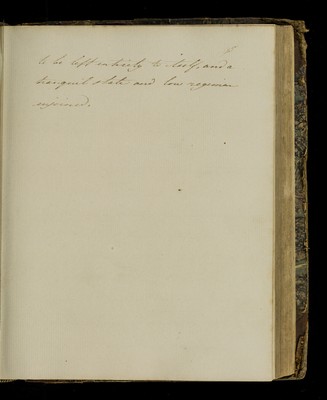 to be left entirely to itself, and a
tranquil state and low regimen
enjoined.